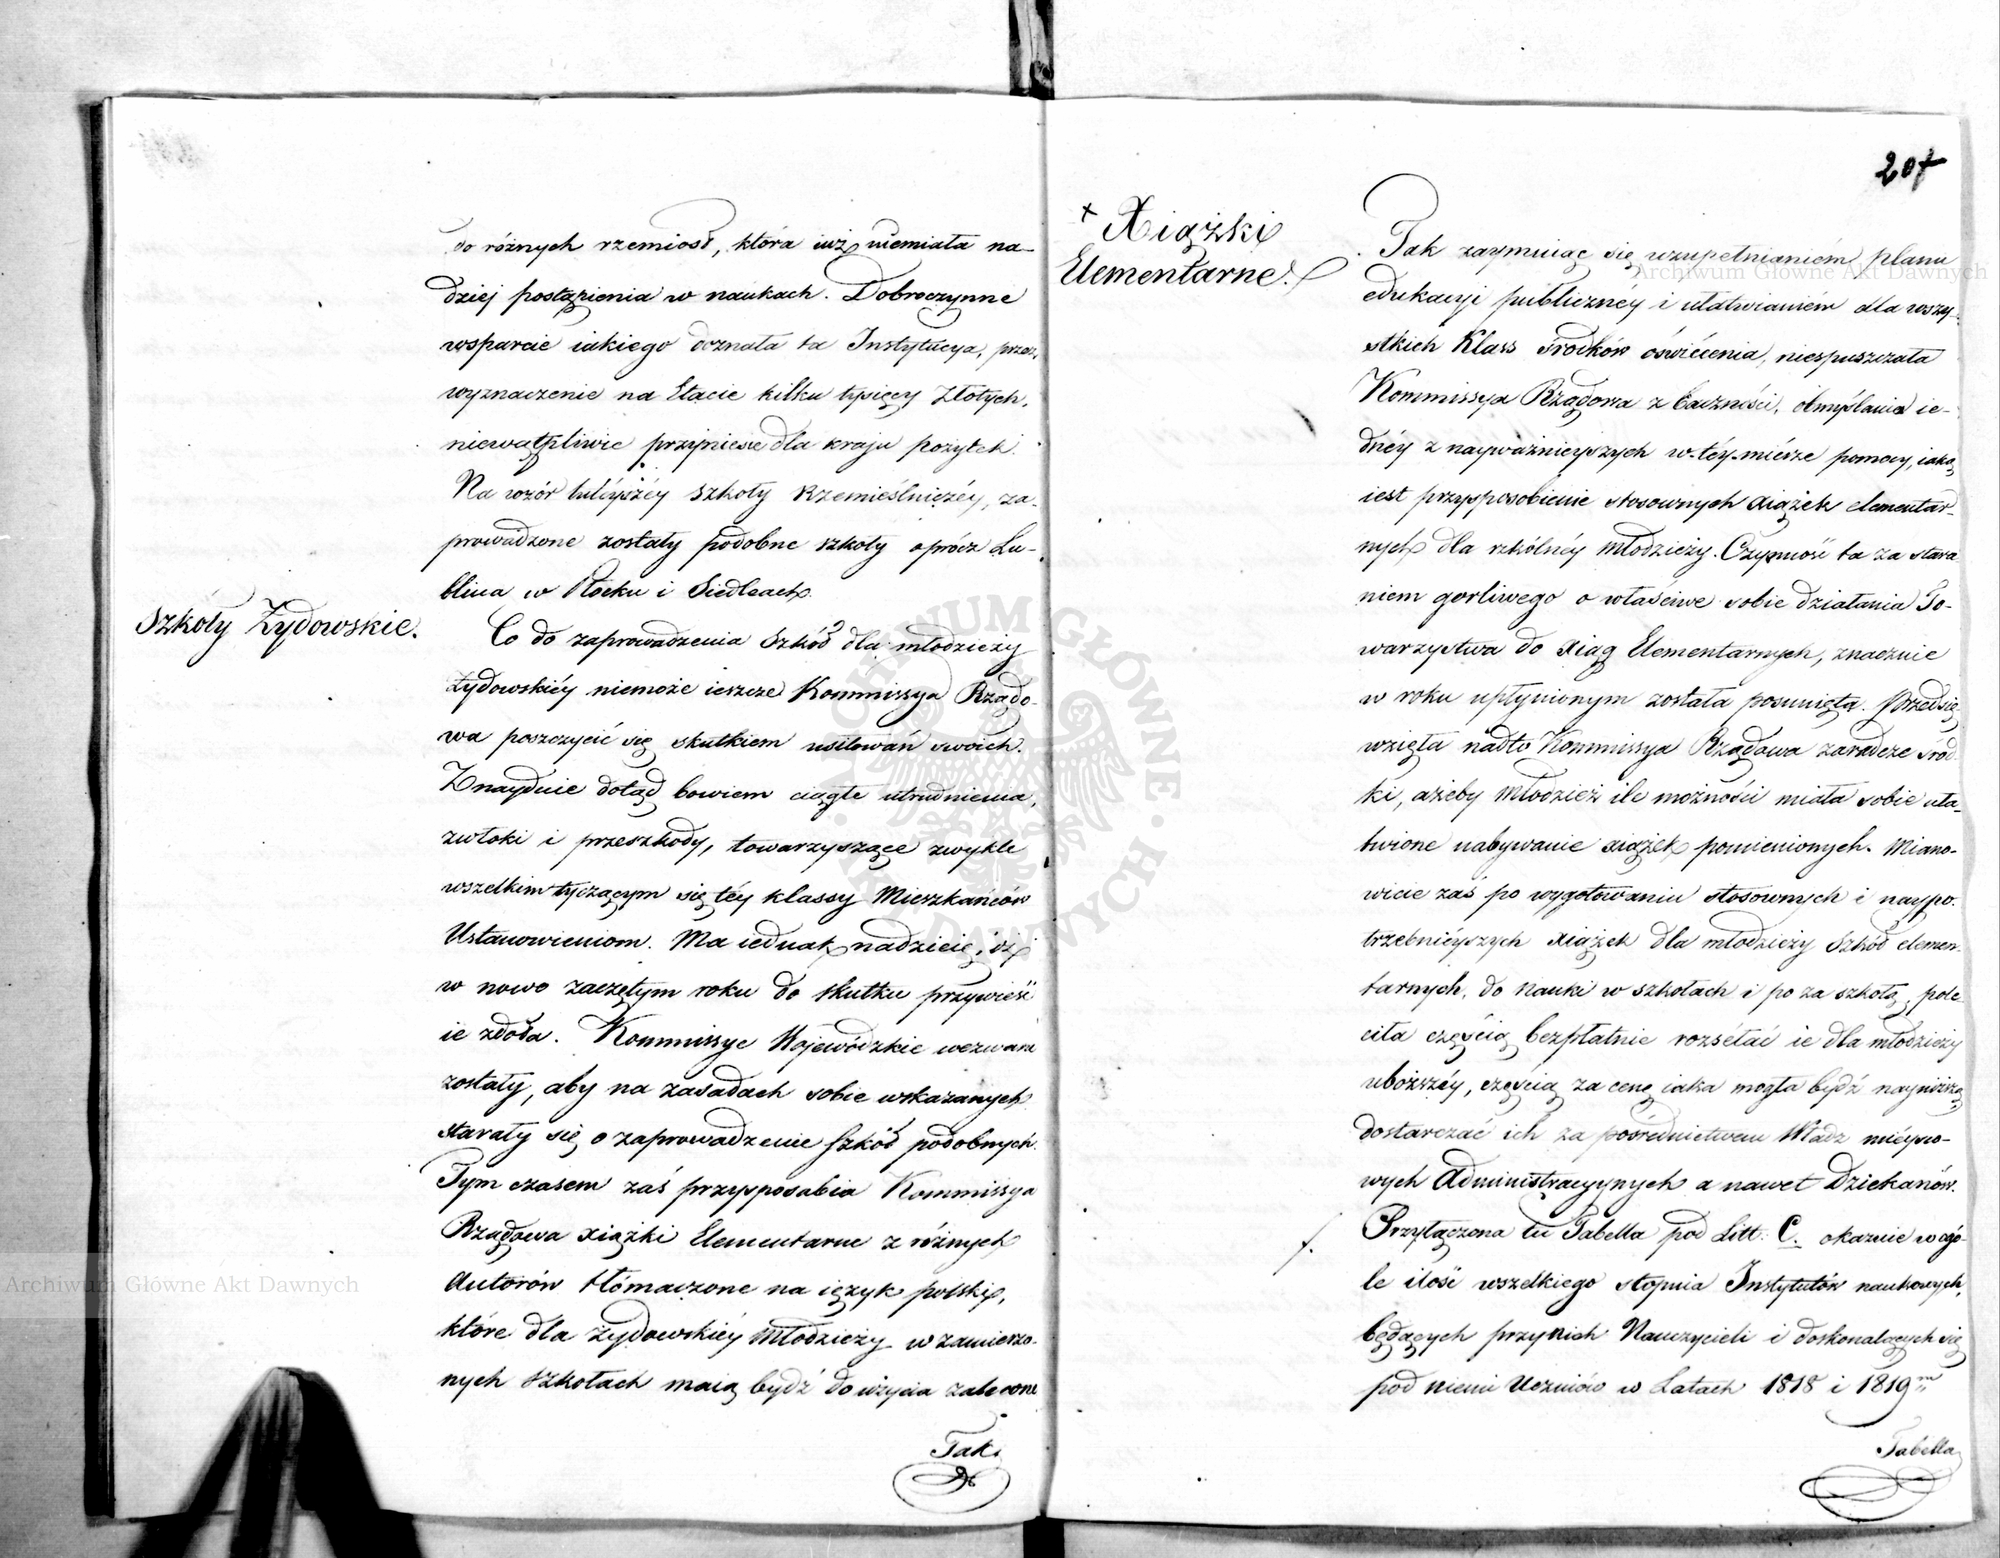 do różnych rzemiosł, która iuż niemiała na-
dziej postąpienia w naukach. Dobroczynne
wsparcie iakiego doznała ta Instytucya, przez
wyznaczenie na Etacie kilku tysięcy Złotych,
niewątpliwie przyniesie dla kraju pożytek.
Na wzór tutéyszéy szkoły Rzemieślniczéy, za-
prowadzone zostały podobne szkoły oprócz Lu-
blina w Płocku i Siedlcach.
Szkoły Żydowskie.
Co do zaprowadzenia Szkół dla młodzieży
żydowskiéy niemoże ieszcze Kommissya Rządo-
wa poszczycić się skutkiem usiłowań swoich.
Znayduie dotąd bowiem ciągłe utrudnienia,
zwłoki i przeszkody, towarzyszące zwykle
wszelkim tyczącym się téy klassy Mieszkańców
Ustanowieniom. Ma iednak nadzieię, iż
w nowo zaczętym roku do skutku przywieść
ie zdoła. Kommissye Wojewódzkie wezwane
zostały, aby na zasadach sobie wskazanych
starały się o zaprowadzenie Szkół podobnych.
Tym czasem zaś przysposabia Kommissya
Rządowa xiążki Elementarne z różnych
Autorów tłómaczone na ięzyk polski,
które dla żydowskiéy Młodzieży w zamierzo-
nych szkołach maią bydź do użycia zalecone
Tak
207
+ Xiążki
Elementarne.
Tak zaymuiąc się uzupełnianiém planu
edukacyi publicznéy i ułatwianiém dla wszy-
stkich Klass środków oświécenia, niespuszczała
Kommissya Rządowa z baczności, obmyślania ie-
dnéy z nayważnieyszych w téy miérze pomocy, iaką
iest przysposobienie stosownych xiążek elementar-
nych dla szkólnéy młodzieży. Czynność ta za stara
niem gorliwego o właściwe sobie działania To-
warzystwa do xiąg Elementarnych, znacznie
w roku upłynionym została posunięta. Przedsię
wzięła nadto Kommissya Rządowa zaradcze środ-
ki, ażeby Młodzież ile możności miała sobie uła-
twione nabywanie xiążek pomienionych. Miano-
wicie zaś po wygotowaniu stosownych i naypo-
trzebniéyszych xiążek dla młodzieży Szkół elemen-
tarnych, do nauki w szkołach i po za szkołą, pole-
ciła częścią bezpłatnie rozsełać ie dla młodzieży
uboższéy, częścią za cenę iaka mogła bydź nayniższą,
dostarczać ich za pośrednictwem Władz miéysco-
wych Administracyynych a nawet Dziekanów.
Przyłączona tu Tabella pod Litt: C. okazuie w ogó-
le ilość wszelkiego stopnia Instytutów naukowych,
będących przy nich Nauczycieli i doskonalących się
pod niemi Uczniów w Latach 1818 i 1819m
Tabella
Archiwum Główne Akt Dawnych
Archiwum Główne Akt Dawnych
ARCHIWUM GŁÓWNE AKT DAWNYCH